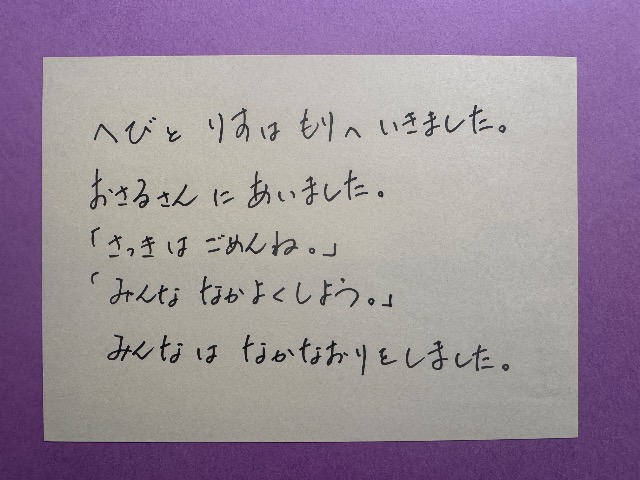 へびと りすは もりへ いきました。
おさるさん に あいました。
「さっきは ごめんね。」
「みんな なかよくしよう。」
みんなは なかなおりをしました。